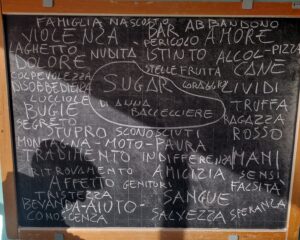 FAMIGLIA NASCOSTO ABBANDONO
VIOLENZA BAR AMORE
PERICOLO
LAGHETTO NUDITA ISTINTO ALCOL-PIZZA
DOLORE STELLE FRUITA CANE
COLPEVOLEZZA SUGAR CORAGGIO LIVIDI
DISOBBEDIENZA
LUCCIOLE DI ANNA TRUFFA
BUGIE BACCELLIERE RAGAZZA
SEGRETO ROSSO
STUPRO SCONOSCIUTI
MONTAGNA-MOTO-PAURA MANI
TRADIMENTO INDIFFERENZA SENSI
RITROVAMENTO AMICIZIA FALSITÀ
AFFETTO GENITORI
TRISTEZZA SANGUE
BEVANDA-AIUTO- SALVEZZA SPERANZA
CONOSCENZA